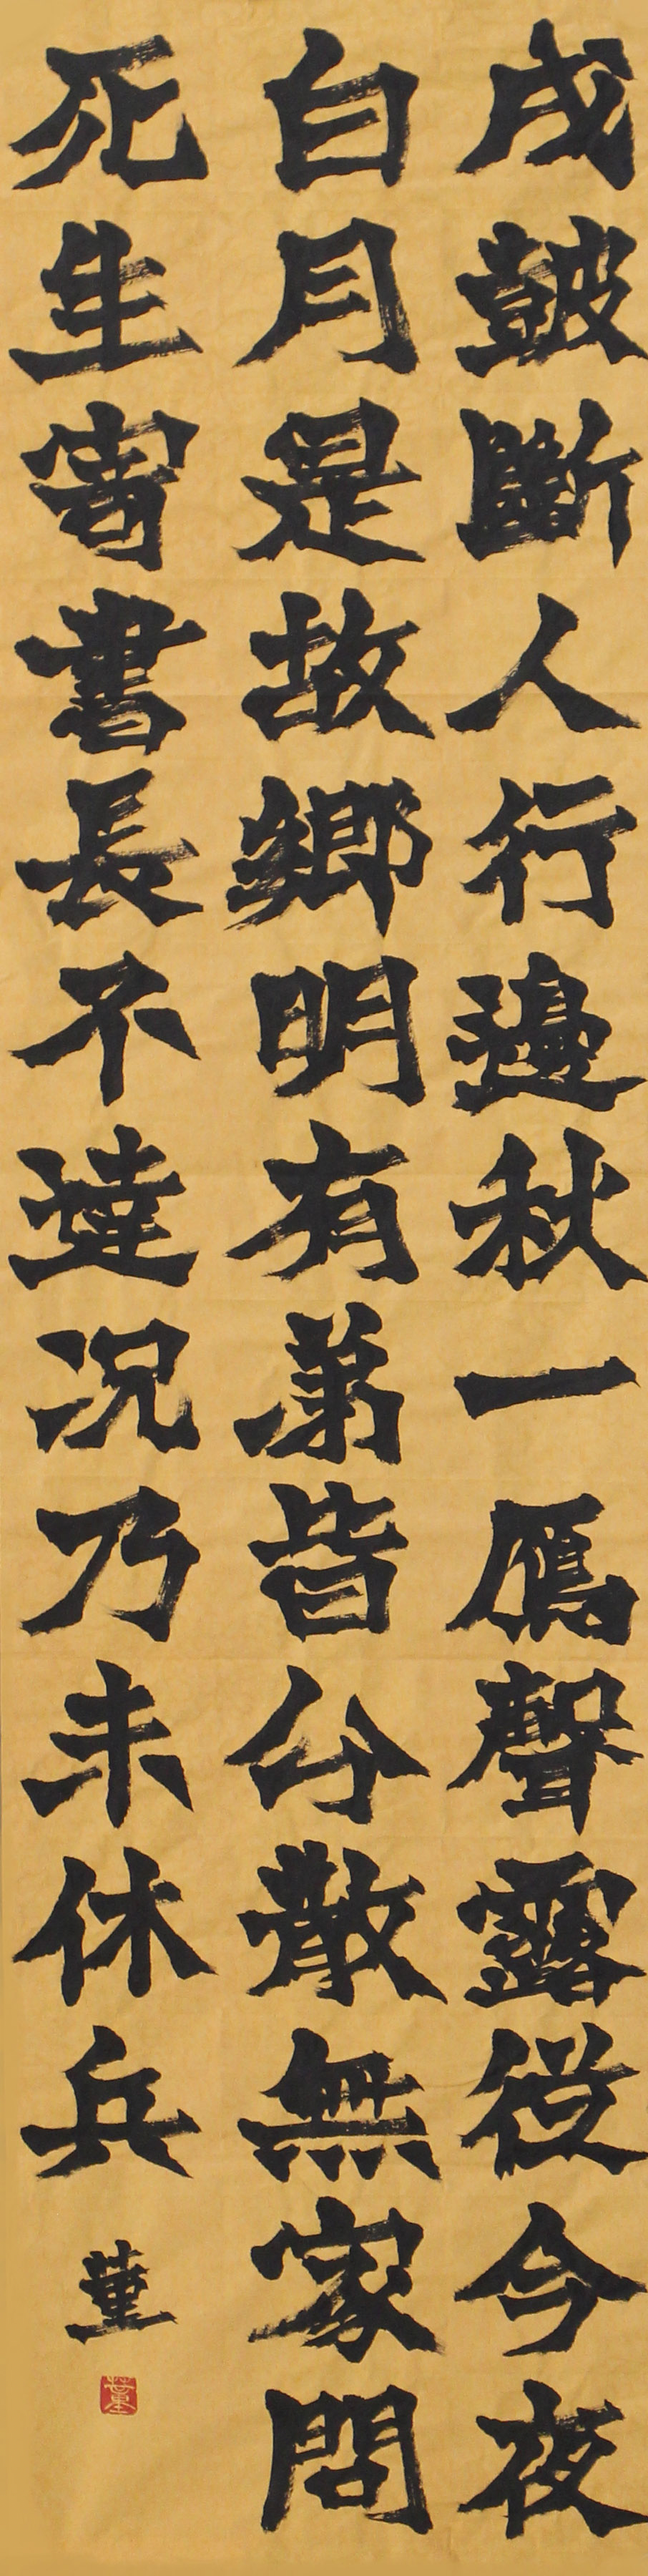 戍鼓斷人行邊秋一鴈聲露從今夜
白月是故鄉明有弟皆分散無家問
死生寄書長不達況乃未休兵
董
董